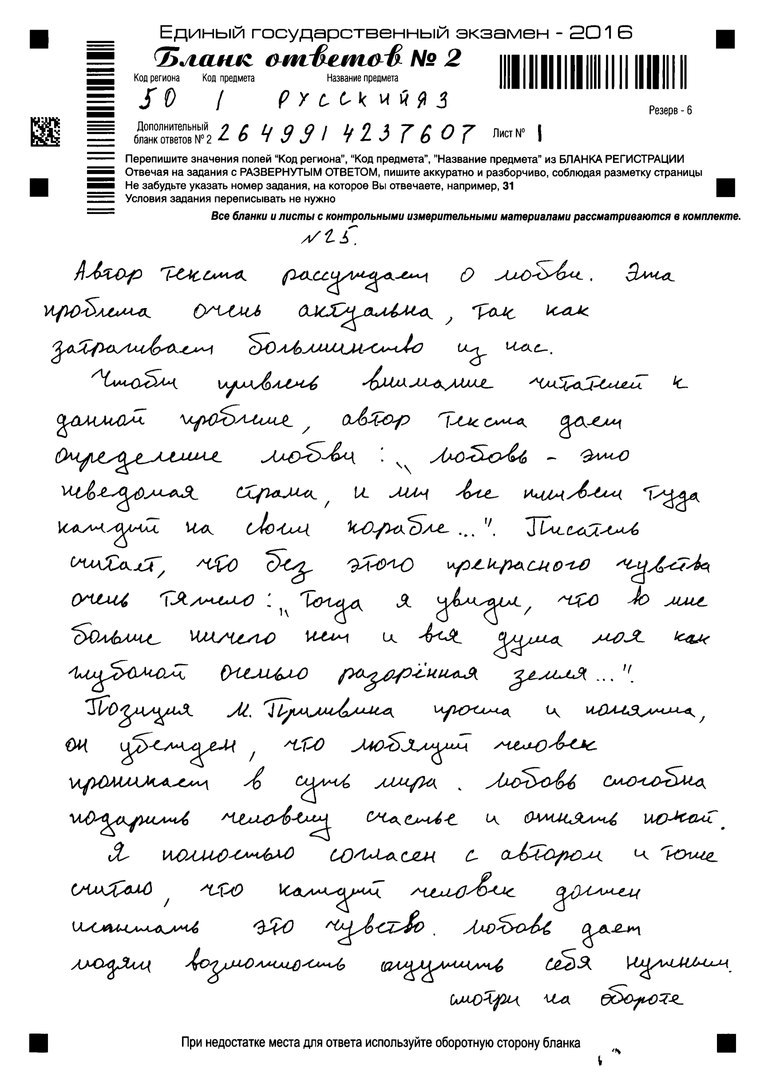 Единый государственный экзамен - 2016
Бланк ответов № 2
Код региона Код предмета Название предмета
50 1 РУССКИЙ ЯЗ
Резерв - 6
Дополнительный
бланк ответов № 2 2649914237607 Лист № 1
Перепишите значения полей "Код региона", "Код предмета", "Название предмета" из БЛАНКА РЕГИСТРАЦИИ
Отвечая на задания с РАЗВЕРНУТЫМ ОТВЕТОМ, пишите аккуратно и разборчиво, соблюдая разметку страницы
Не забудьте указать номер задания, на которое Вы отвечаете, например, 31
Условия задания переписывать не нужно
Все бланки и листы с контрольными измерительными материалами рассматриваются в комплекте.
№25.
Автор текста рассуждает о любви. Эта
проблема очень актуальна, так как
затрагивает большинство из нас.
Чтобы привлечь внимание читателей к
данной проблеме, автор текста дает
определение любви: „Любовь - это
неведомая страна, и мы все плывем туда
каждый на своем корабле...". Писатель
считает, что без этого прекрасного чувства
очень тяжело: „Тогда я увидел, что во мне
больше ничего нет и вся душа моя как
глубокой осенью разорённая земля...".
Позиция М. Пришвина проста и понятна,
он убежден, что любящий человек
проникает в суть мира. Любовь способна
подарить человеку счастье и отнять покой.
Я полностью согласен с автором и тоже
считаю, что каждый человек должен
испытать это чувство. Любовь дает
людям возможность ощутить себя нужным.
смотри на обороте
При недостатке места для ответа используйте оборотную сторону бланка